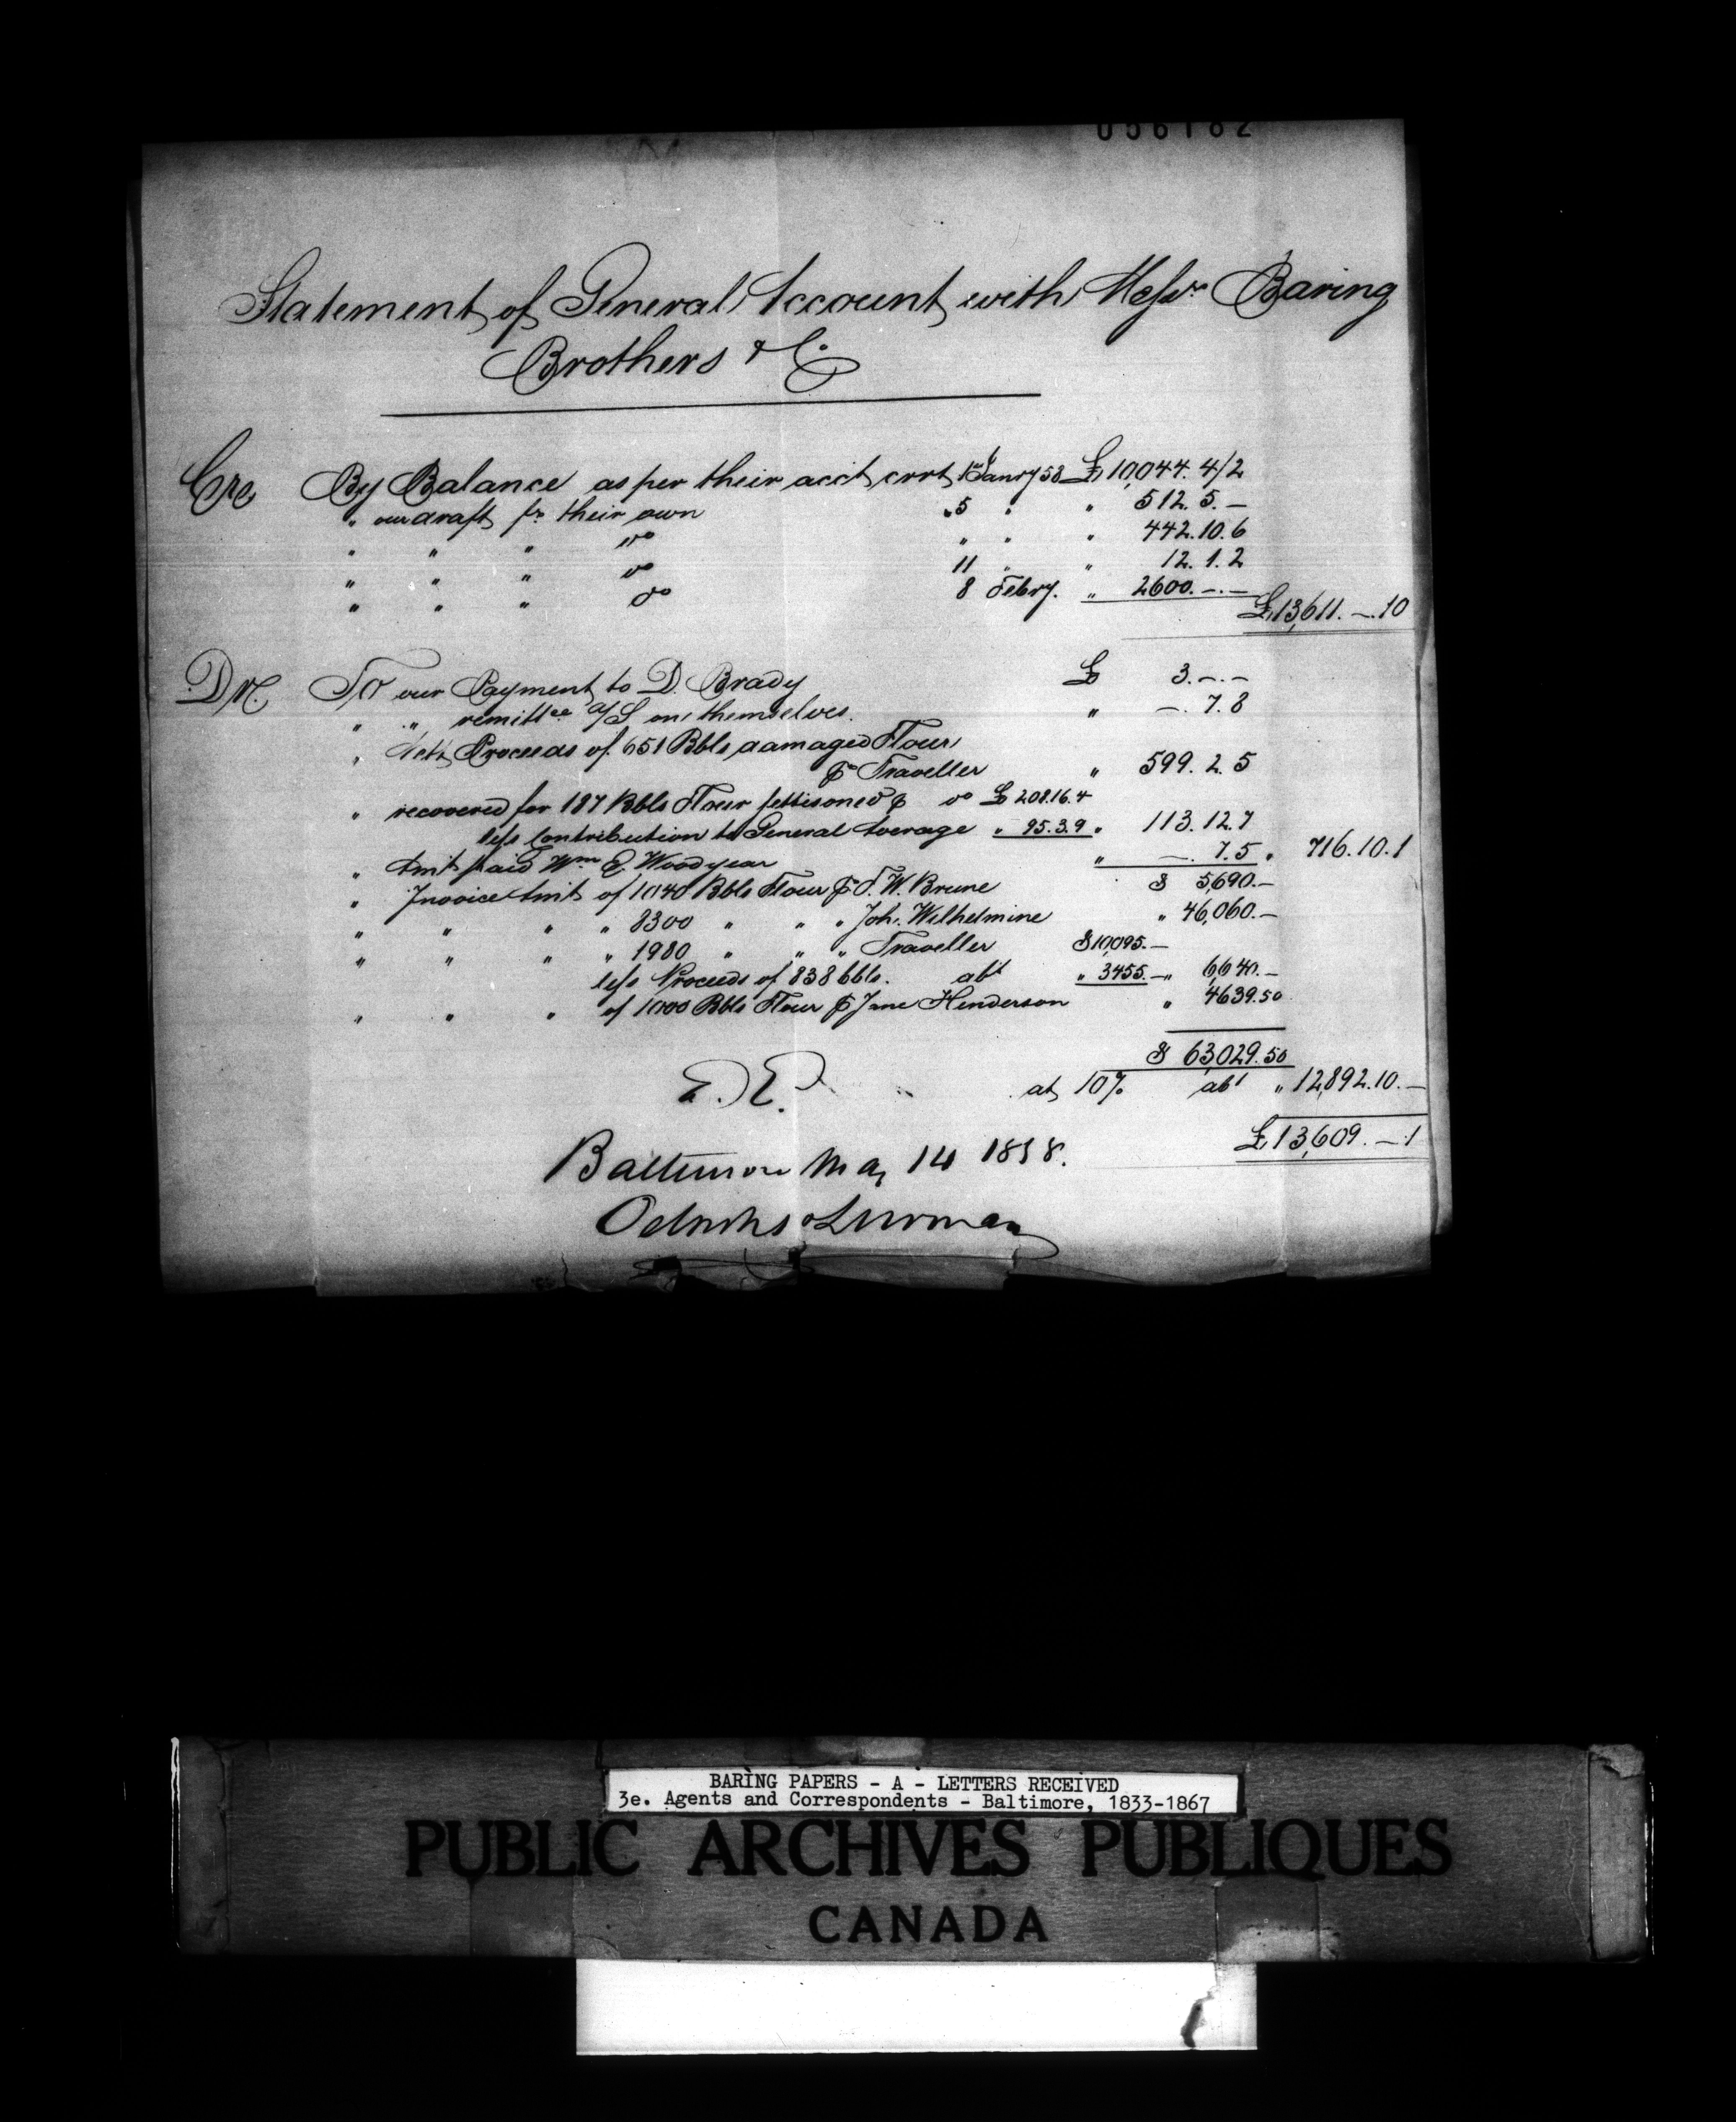 056182
Statement of General Account with Messrs. Baring
Brothers & Co.
Cre By Balance as per their acct currt 1st Janry 58 £ 10,044. 4/2
" our draft fr. their own " 5 " " 512. 5. –
" " " do " " " 442. 10. 6
" " " do 11 " " 12. 1. 2
" " " do 8 Febry. " 2600. –. –
£ 13,611. –. 10
Dr. To our Payment to D. Brady £ 3. –. –
" " remittce a/S on themselves. " –. 7. 8
" Nett Proceeds of 651 Bbls damaged Flour
p Traveller " 599. 2. 5
" recovered for 187 Bbls Flour jettisoned p do £ 208.16.4
less Contribution to General Average " 95.3.9 " 113. 12. 7
" Amt paid Wm. E. Woodyear " –. 7. 5 " 716. 10. 1
" Invoice Amt of 1040 Bbls Flour p F. W. Brune $ 5,690.–
" " " " 8300 " " " Joh. Wilhelmine " 46,060.–
" " " " 1980 " " " Traveller $10,095.–
less Proceeds of 838 bbls. abt " 3455.– " 6,640.–
" " " of 1000 Bbls Flour p Jane Henderson " 4639.50
$ 63,029.50
E. E. at 10% abt " 12,892.10. –
£ 13,609. –. 1
Baltimore May 14 1858.
Oelrichs & Lurman
BARING PAPERS - A - LETTERS RECEIVED
3e. Agents and Correspondents - Baltimore, 1833-1867
PUBLIC ARCHIVES PUBLIQUES
CANADA